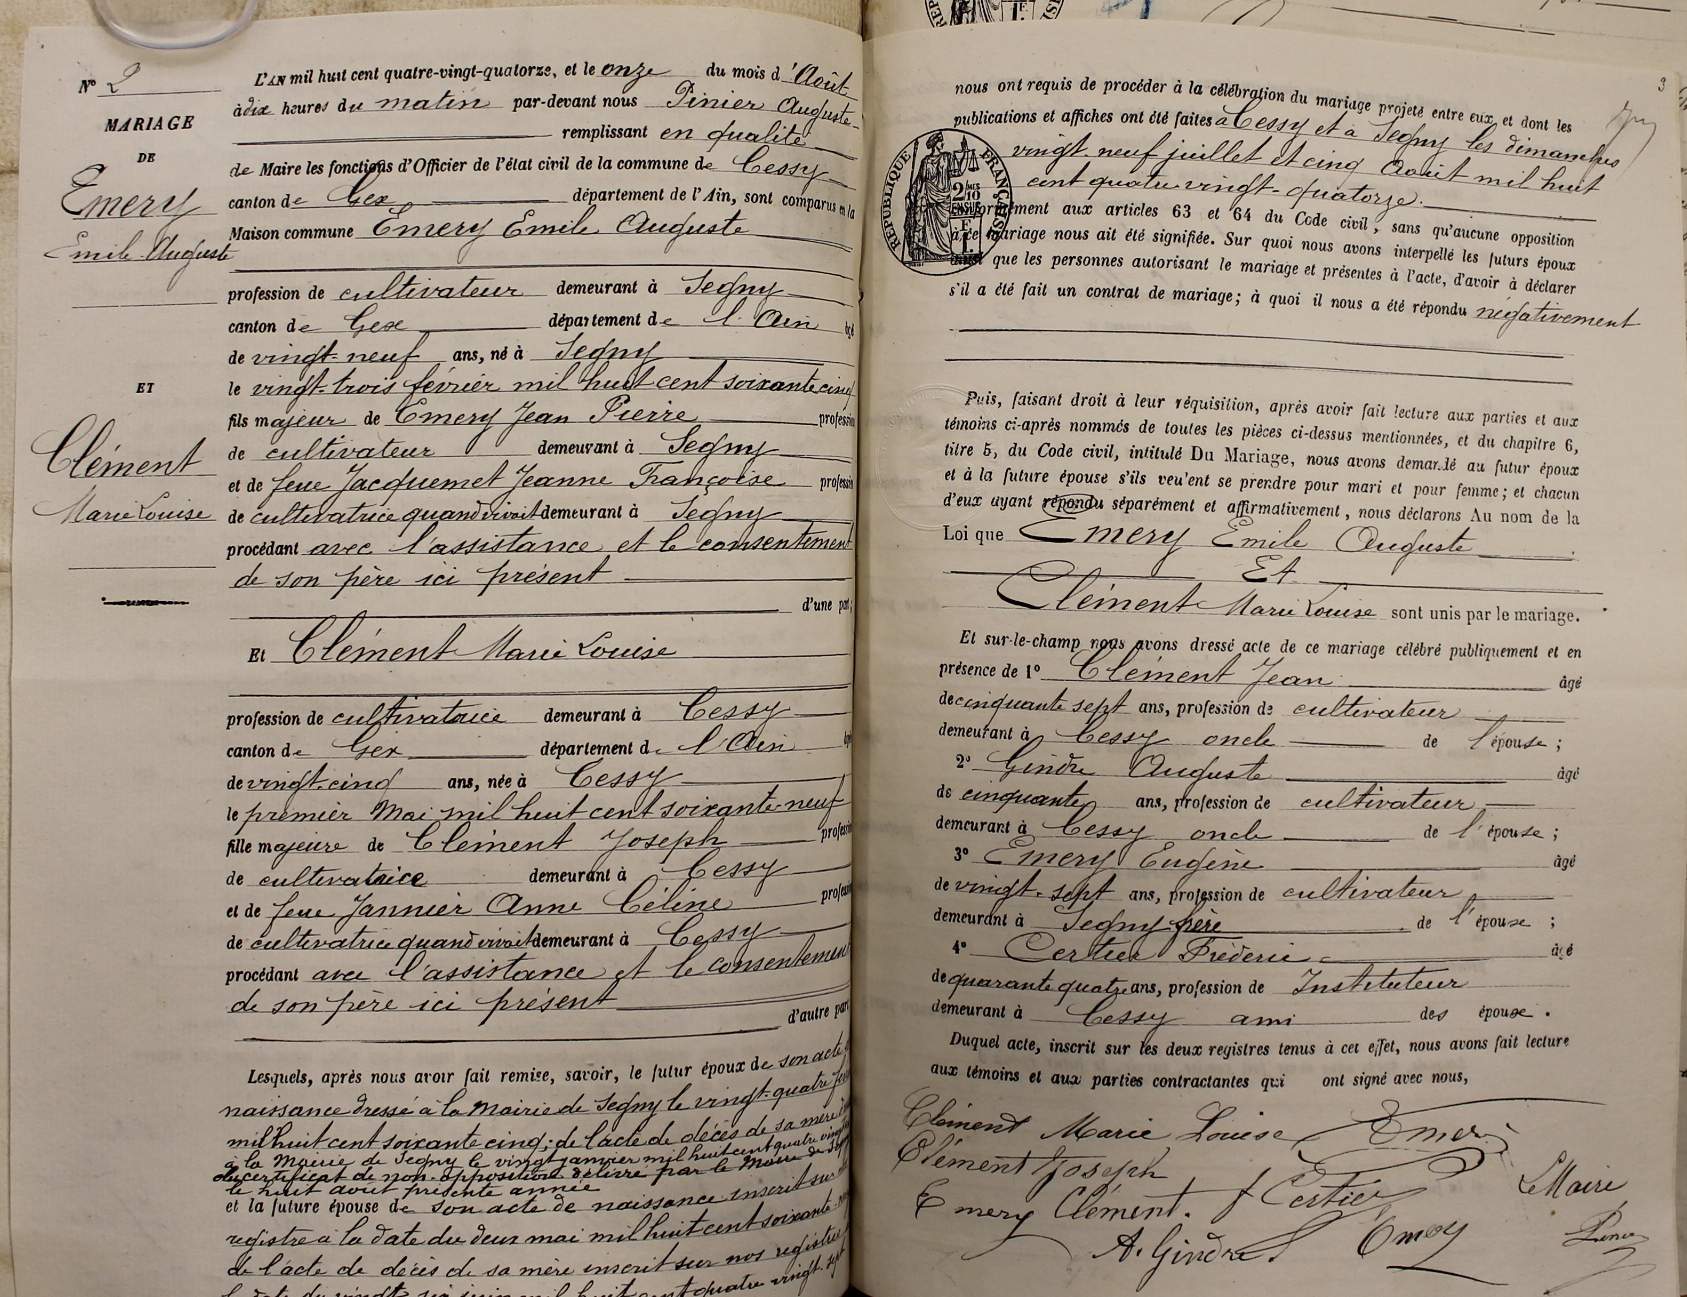 N° 2
MARIAGE
DE
Emery
Emile Auguste
ET
Clément
Marie Louise
L'AN mil huit cent quatre-vingt-quatorze, et le onze du mois d'Août
à dix heures du matin par-devant nous Pinier Auguste
remplissant en qualité
de Maire les fonctions d'Officier de l'état civil de la commune de Cessy
canton de Gex département de l'Ain, sont comparus en la
Maison commune Emery Emile Auguste
profession de cultivateur demeurant à Segny
canton de Gex département de l'Ain âgé
de vingt-neuf ans, né à Segny
le vingt-trois février mil huit cent soixante cinq
fils majeur de Emery Jean Pierre profession
de cultivateur demeurant à Segny
et de feue Jacquemet Jeanne Françoise profession
de cultivatrice quand vivait demeurant à Segny
procédant avec l'assistance et le consentement
de son père ici présent
d'une part;
Et Clément Marie Louise
profession de cultivatrice demeurant à Cessy
canton de Gex département de l'Ain
de vingt-cinq ans, née à Cessy
le premier Mai mil huit cent soixante-neuf
fille majeure de Clément Joseph profession
de cultivatrice demeurant à Cessy
et de feue Jannier Anne Céline profession
de cultivatrice quand vivait demeurant à Cessy
procédant avec l'assistance et le consentement
de son père ici présent
d'autre part
Lesquels, après nous avoir fait remise, savoir, le futur époux de son acte
naissance dressé à la Mairie de Segny le vingt-quatre
mil huit cent soixante cinq; de l'acte de décès de sa mère
à la Mairie de Segny le vingt janvier mil huit cent quatre vingt
du certificat de non opposition délivré par le Maire de Segny
le huit août présente année
et la future épouse de son acte de naissance inscrit sur
registre à la date du deux mai mil huit cent soixante
de l'acte de décès de sa mère inscrit sur nos registres
la date du vingt six juin mil huit cent quatre vingt-sept
3
nous ont requis de procéder à la célébration du mariage projeté entre eux et dont les
publications et affiches ont été faites à Cessy et à Segny les dimanches
vingt-neuf juillet et cinq Août mil huit
cent quatre vingt-quatorze.
RÉPUBLIQUE FRANÇAISE
2/10 EN SUS
conformément aux articles 63 et 64 du Code civil, sans qu'aucune opposition
à ce mariage nous ait été signifiée. Sur quoi nous avons interpellé les futurs époux
ainsi que les personnes autorisant le mariage et présentes à l'acte, d'avoir à déclarer
s'il a été fait un contrat de mariage; à quoi il nous a été répondu négativement
Puis, faisant droit à leur réquisition, après avoir fait lecture aux parties et aux
témoins ci-après nommés de toutes les pièces ci-dessus mentionnées, et du chapitre 6,
titre 5, du Code civil, intitulé Du Mariage, nous avons demandé au futur époux
et à la future épouse s'ils veulent se prendre pour mari et pour femme; et chacun
d'eux ayant répondu séparément et affirmativement, nous déclarons Au nom de la
Loi que Emery Emile Auguste
Et
Clément Marie Louise sont unis par le mariage.
Et sur-le-champ nous avons dressé acte de ce mariage célébré publiquement et en
présence de 1° Clément Jean âgé
de cinquante sept ans, profession de cultivateur
demeurant à Cessy oncle de l'épouse;
2° Gindre Auguste âgé
de cinquante ans, profession de cultivateur
demeurant à Cessy oncle de l'épouse;
3° Emery Eugène âgé
de vingt-sept ans, profession de cultivateur
demeurant à Segny frère de l'épouse;
4° Certier Fréderic âgé
de quarante quatre ans, profession de Instituteur
demeurant à Cessy ami des épouse.
Duquel acte, inscrit sur les deux registres tenus à cet effet, nous avons fait lecture
aux témoins et aux parties contractantes qui ont signé avec nous,
Clément Marie Louise Emery
Clément Joseph
Le Maire
Emery Clément. Certier
A. Gindre Emery
Pinier